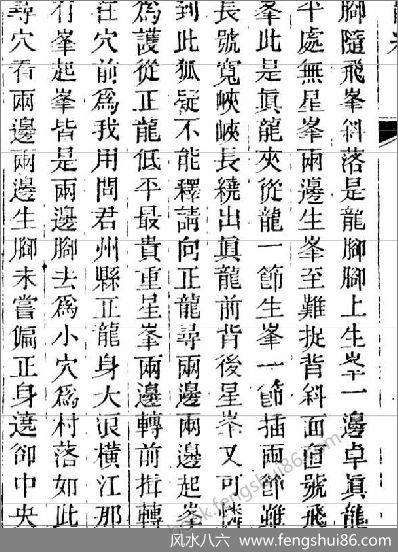 腳隨飛峯斜落是龍腳腳上生峯一邊卓眞龍
平處無星峯兩邊生峯至難捉背斜面直號飛
峯此是眞龍夾從龍一節生峯一節插兩節雖
長號寬峽峽長繞出眞龍前背後星峯又可憐
到此狐疑不能釋請向正龍尋兩邊兩邊起峯
爲護從正龍低平最貴重星峯兩邊轉前揖轉
在穴前爲我用問君州縣正龍身大浪橫江那
有峯起峯皆是兩邊腳去爲小穴爲村落如此
尋穴看兩邊兩邊生腳未嘗偏正身遶卻中央
www.fengshui86.com
风水八六 www.fengshui86.com